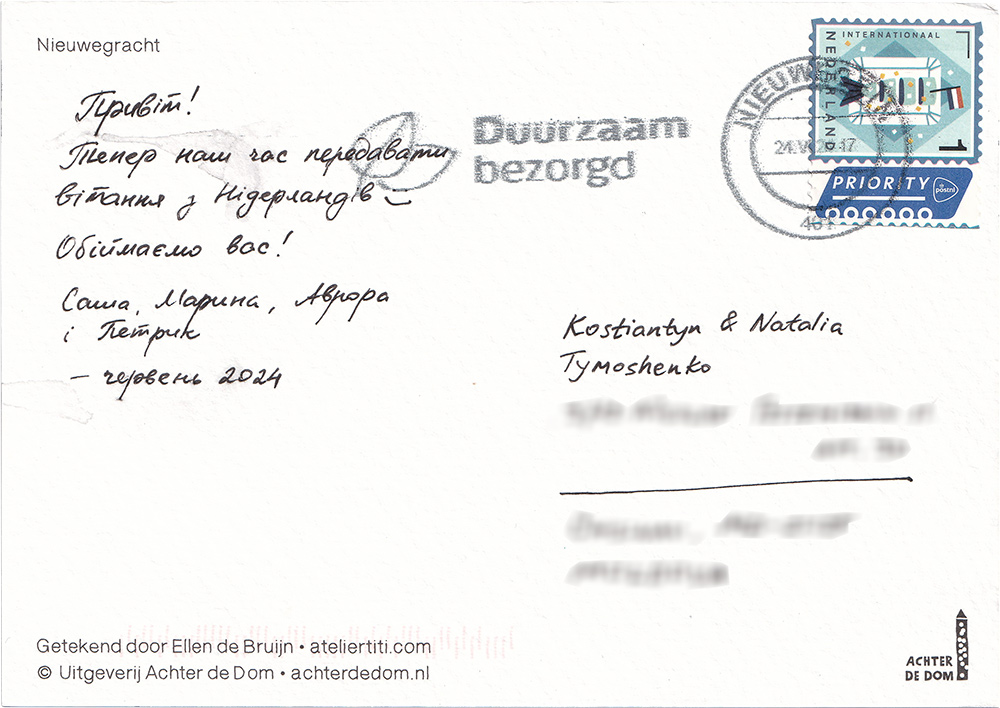 Nieuwegracht
Привіт!
Тепер наш час передавати
вітання з Нідерландів
Обіймаємо вас!
Саша, Марина, Аврора
і Петрик
— червень 2024
Duurzaam
bezorgd
INTERNATIONAAL
NEDERLAND
1
PRIORITY
postnl
Kostiantyn & Natalia
Tymoshenko
Getekend door Ellen de Bruijn • ateliertiti.com
© Uitgeverij Achter de Dom • achterdedom.nl
ACHTER
DE DOM